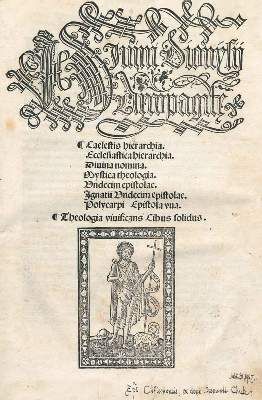 Diuini Dionysij
Areopagite
¶ Caelestis hierarchia.
Ecclesiastica hierarchia.
Diuina nomina.
Mystica theologia.
Vndecim epistolae.
Ignatii Vndecim epistolae.
Polycarpi Epistola vna.
¶ Theologia viuificans Cibus solidus.